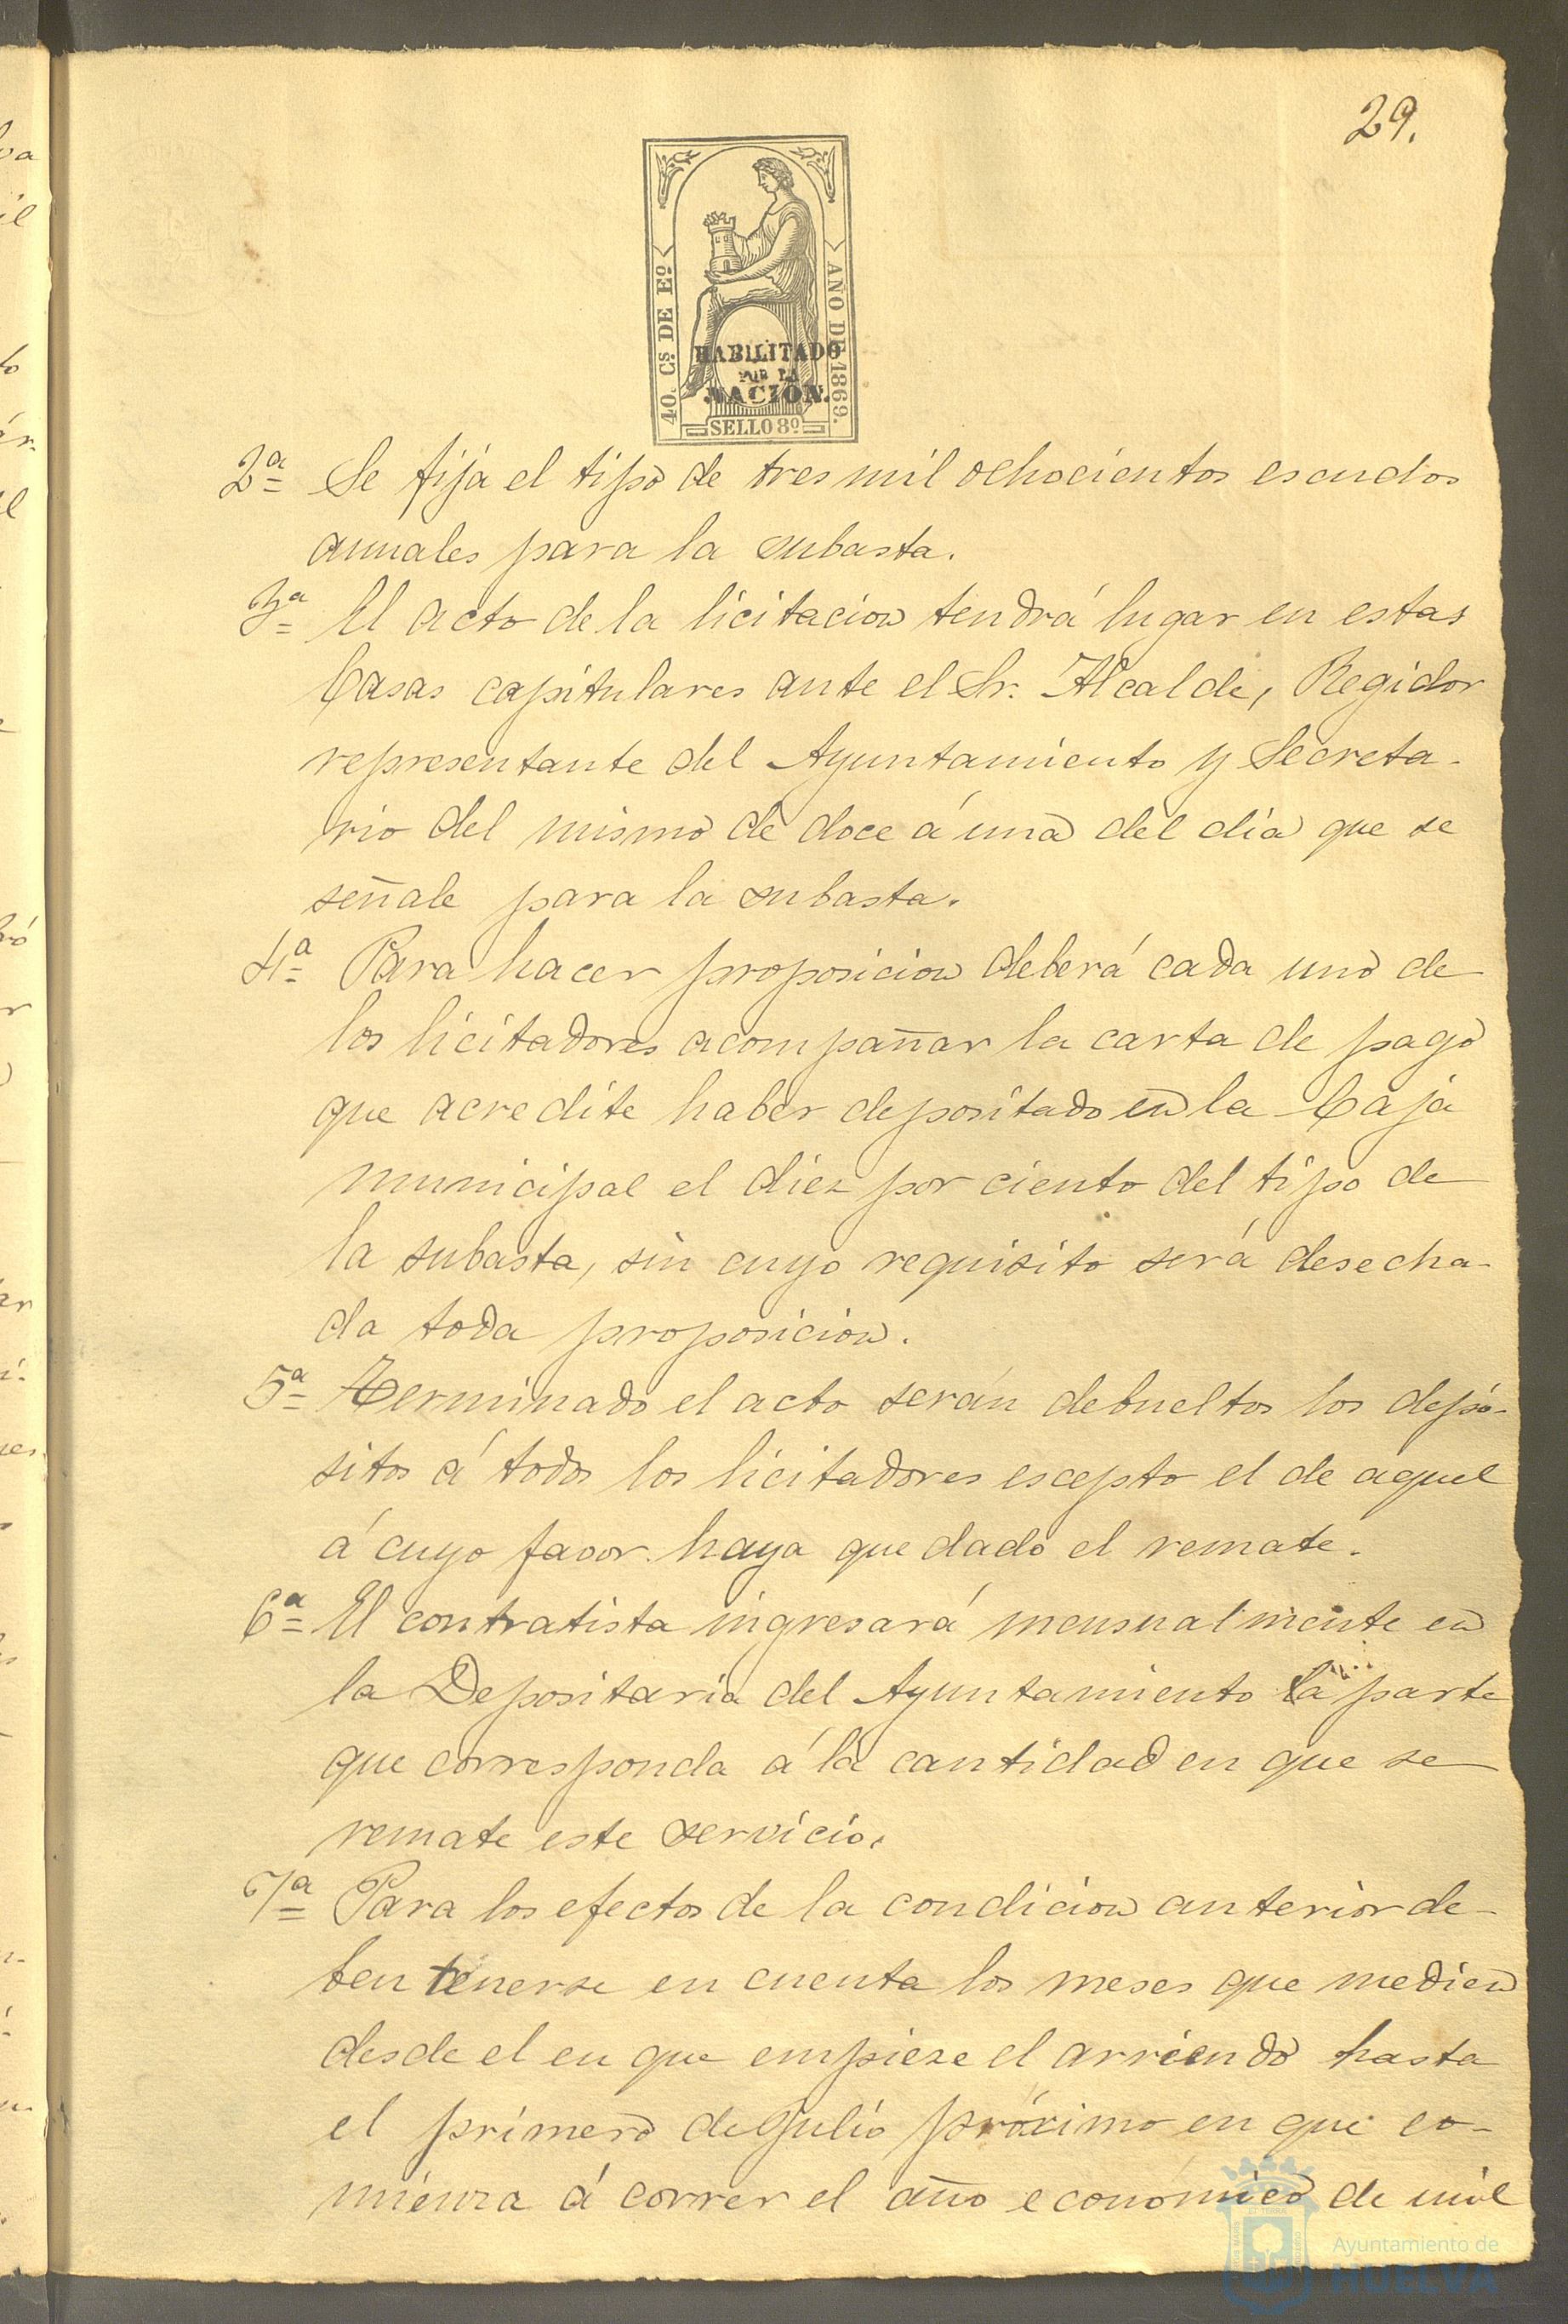 29.
40. Cs. DE Eº
AÑO DE 1869.
HABILITADO
POR LA
NACION.
SELLO 8º
2ª Se fija el tipo de tres mil ochocientos escudos
anuales para la subasta.
3ª El acto de la licitacion tendrá lugar en estas
Casas capitulares ante el Sr. Alcalde, Regidor
representante del Ayuntamiento y Secreta-
rio del mismo de doce á una del dia que se
señale para la subasta.
4ª Para hacer proposicion deberá cada uno de
los licitadores acompañar la carta de pago
que acredite haber depositado en la Caja
municipal el diez por ciento del tipo de
la subasta, sin cuyo requisito será desecha-
da toda proposicion.
5ª Terminado el acto serán debueltos los depó-
sitos á todos los licitadores escepto el de aquel
á cuyo favor haya quedado el remate.
6ª El contratista ingresará mensualmente en
la Depositaria del Ayuntamiento la parte
que corresponda á la cantidad en que se
remate este servicio.
7ª Para los efectos de la condicion anterior de-
ben tenerse en cuenta los meses que medien
desde el en que empieze el arriendo hasta
el primero de Julio próximo en que co-
mienza á correr el año económico de mil
Ayuntamiento de
HUELVA